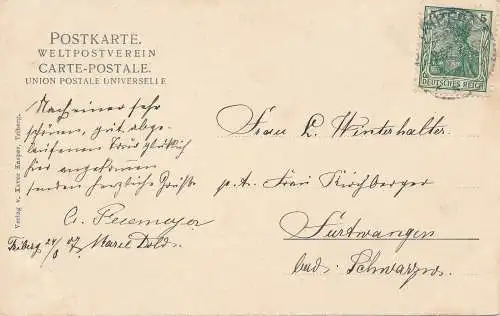 POSTKARTE.
WELTPOSTVEREIN
CARTE-POSTALE.
UNION POSTALE UNIVERSELLE
5
DEUTSCHES REICH
Verlag v. Xaver Kaeper, Triberg.
Nach einer sehr
schönen, gut abge-
laufenen Tour glücklich
hier angekommen
senden herzliche Grüße
Triberg 24/8 07. Marie Dold.
Frau L. Winterhalter
p. A. Frau Kirchberger
Furtwangen
bad. Schwarzw.